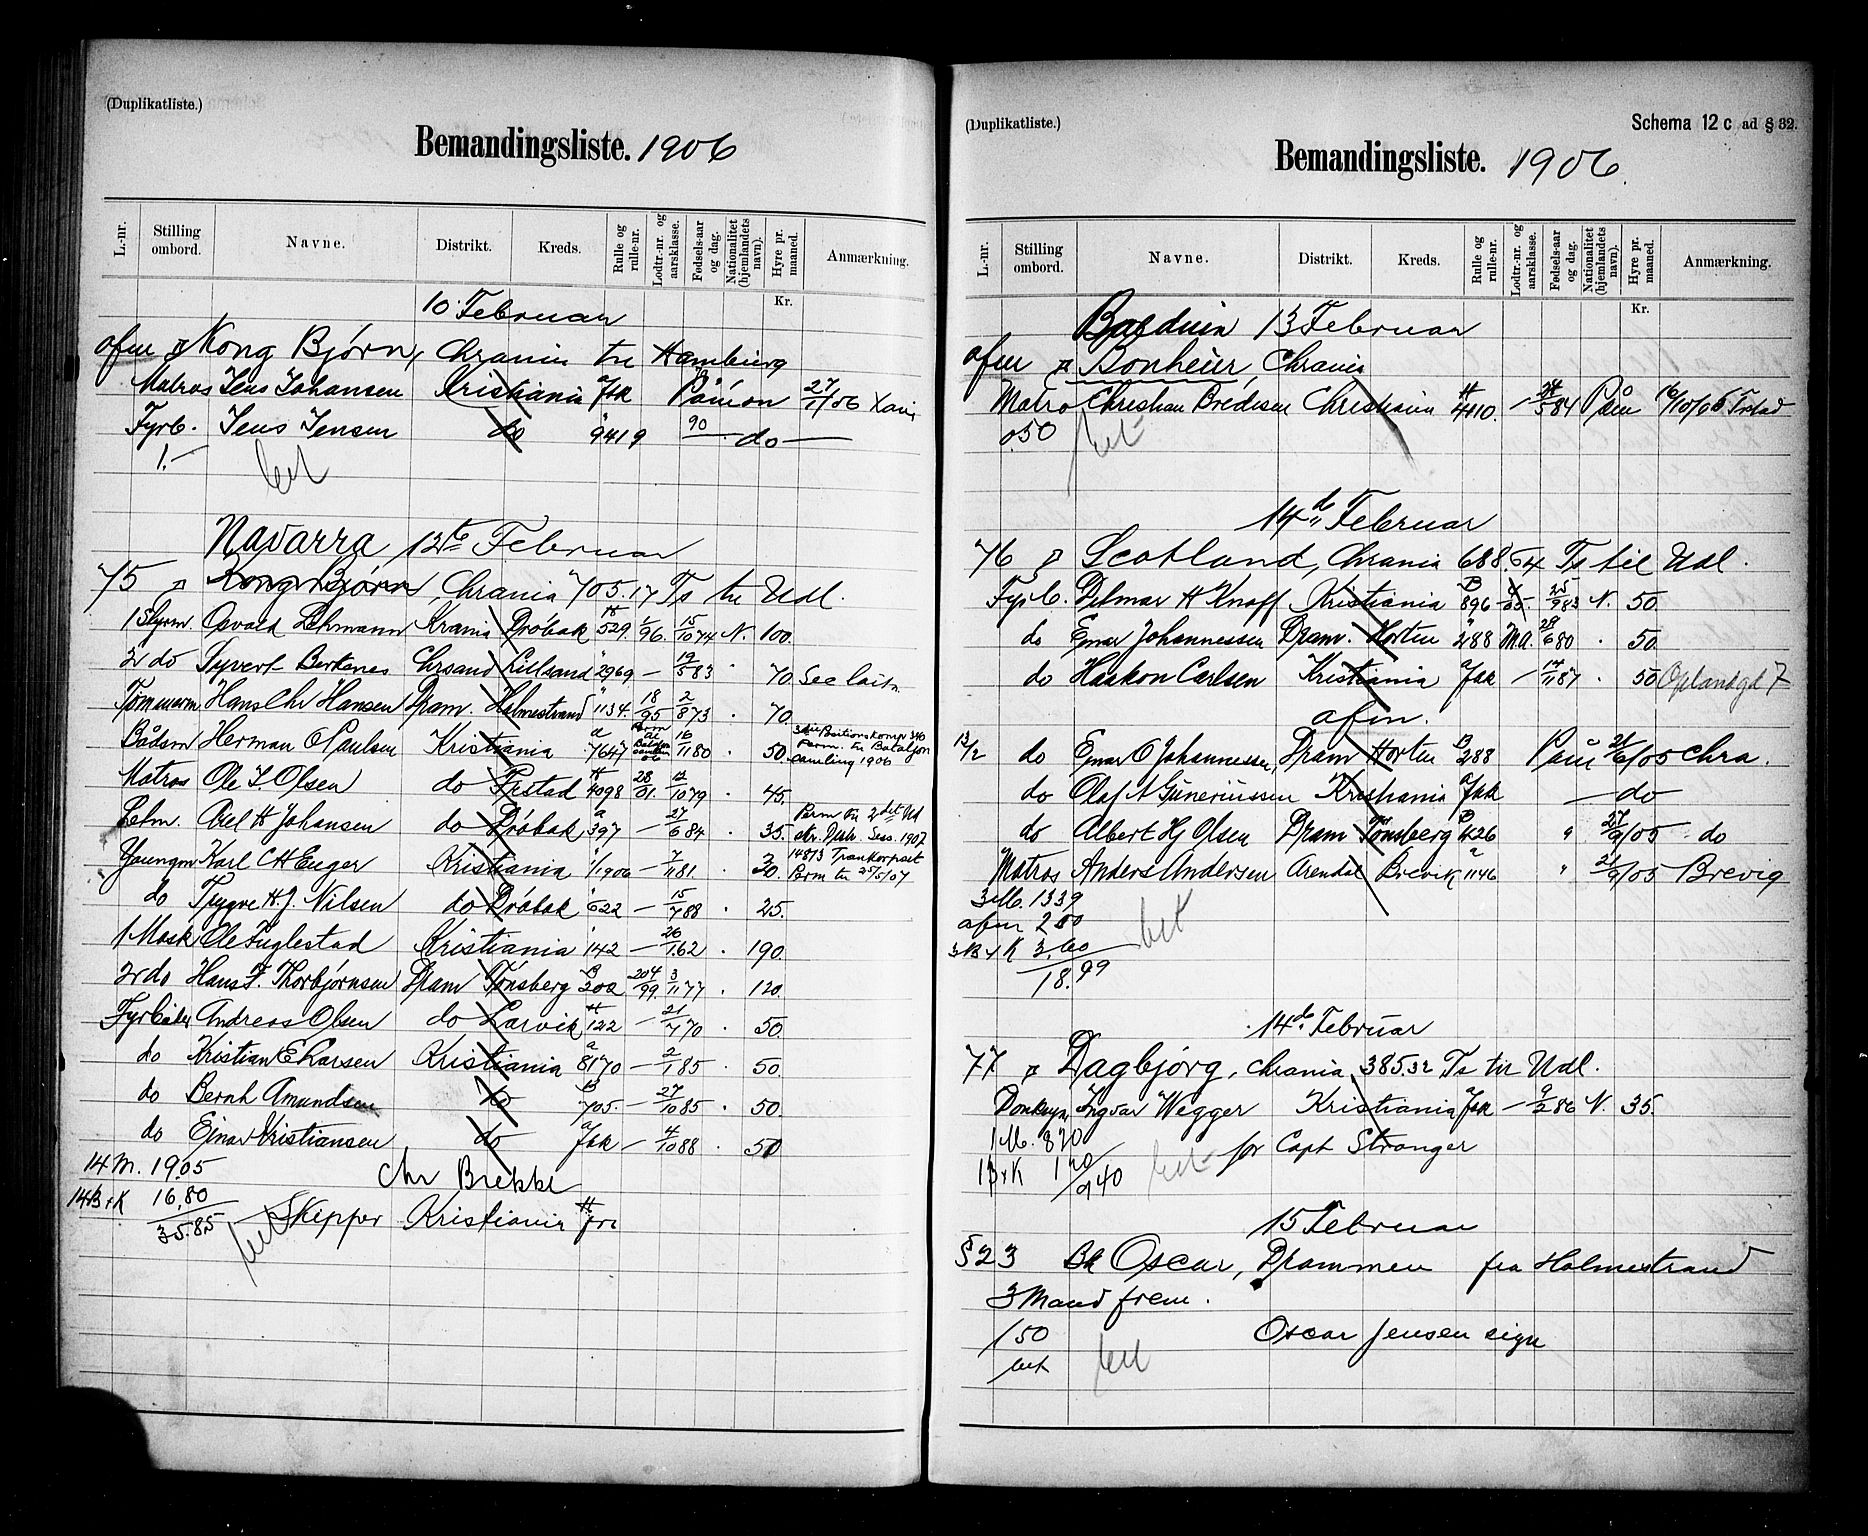 (Duplikatliste.)
Bemandingsliste. 1906
L.-nr. Stilling ombord. Navne. Distrikt. Kreds. Rulle og rulle-nr. Lodtr.-nr. og aarsklasse. Fødsels-aar og dag. Nationalitet (hjemlandets navn). Hyre pr. maaned. Anmærkning.
Kr.
10 Februar
Kong Bjørn, Chrania til Hamburg
Matros Jens Johansen Kristiania 27/1/06
Fyrb. Jens Jensen do 9419 90 do
1.—
bet
Navarra 12te Februar
75 Kong Bjørn, Chrania 705.17 Ts til Udl.
1 Styrm Osvald Lehmann Krania Drøbak 529 1/96 15/10 74 N. 100.
2 do Syvert Berkenes Chrsand Lillsand 2969 — 19/5 83 · 70
Tømmerm Hans Chr Hansen Dram. Holmestrand 1134. 18/95 2/8 73 · 70.
Bådsm Herman O Paulsen Kristiania 7647 16/11 80 · 50.
samling 1906
Matros Ole L Olsen do 4098 28/01. 12/10 79 · 45.
Axel H Johansen do Drøbak 397 — 27/6 84 · 35.
Karl C H Euger Kristiania 1/1906 — 7/1 81 · 30.
do Trygve H. J. Nilsen do Drøbak 622 — 15/7 88 · 25.
1 Mask Ole Fuglestad Kristiania 142 — 26/1 62 · 190.
2 do Hans F. Thorbjørnsen Dram Tønsberg 302 204/99. 3/11 77 · 120.
Fyrbøder Andreas Olsen do Larvik 122 — 21/7 70 · 50.
do Kristian E Larsen Kristiania 8170 — 2/1 85 · 50.
do Bernh Amundsen do 705. — 27/10 85 · 50.
do Ejnar Kristiansen do — 4/10 88 · 50
14 M. 19.05
14 B + K 16.80
35.85
Chr Brekke
Skipper Kristiania
bet
(Duplikatliste.)
Schema 12 c ad § 32.
Bemandingsliste. 1906.
L.-nr. Stilling ombord. Navne. Distrikt. Kreds. Rulle og rulle-nr. Lodtr.-nr. og aarsklasse. Fødsels-aar og dag. Nationalitet (hjemlandets navn). Hyre pr. maaned. Anmærkning.
Kr.
13 Februar
Bonheur, Chrania
Matro Christian Bredesen Christiania 4410.
0.50
bet
14de Februar
76 Scotland, Chrania 688.64 Ts til Udl.
Fyrb. Delmar H Knoff Kristiania 896 25/9 83 N. 50.
do Ejnar Johannessen Dram. Horten 288 M.A. 28/6 80 · 50.
do Haakon Carlsen Kristiania — 14/11 87 · 50
afm.
13/2 do Ejnar O Johannessen Dram Horten 288 Chra.
do Olaf A Guneriussen Kristiania — do
do Albert Hj Olsen Dram Tønsberg 426 27/9/05 do
Matros Anders Andersen Arendal Brevik 1146 21/9/05 Brevig
3 M. 1339
afm 2 00
3 B + K 3.60
18.99
bet
14de Februar
77 Dagbjørg, Chrania 385.32 Ts til Udl.
Ingvar Wegger Kristiania — 9/2 86 N. 35.
1 M. 820
1 B + K 1 20
9 40
bet
for Capt Stranger
15 Februar
§ 23 Bk Oscar, Drammen fra Holmestrand
3 Mand frem.
1 50
bet
bet
Oscar Jensen sign